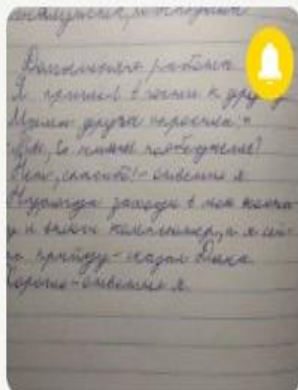 Домашняя работа
Я пришел в гости к другу
Мама друга спросила: "
не хочешь пообедать?
Нет, спасибо! - ответил я
заходи в мою комна
у и включи компьютер, а я сей-
приду - сказал Дима.
Хорошо - ответил я.